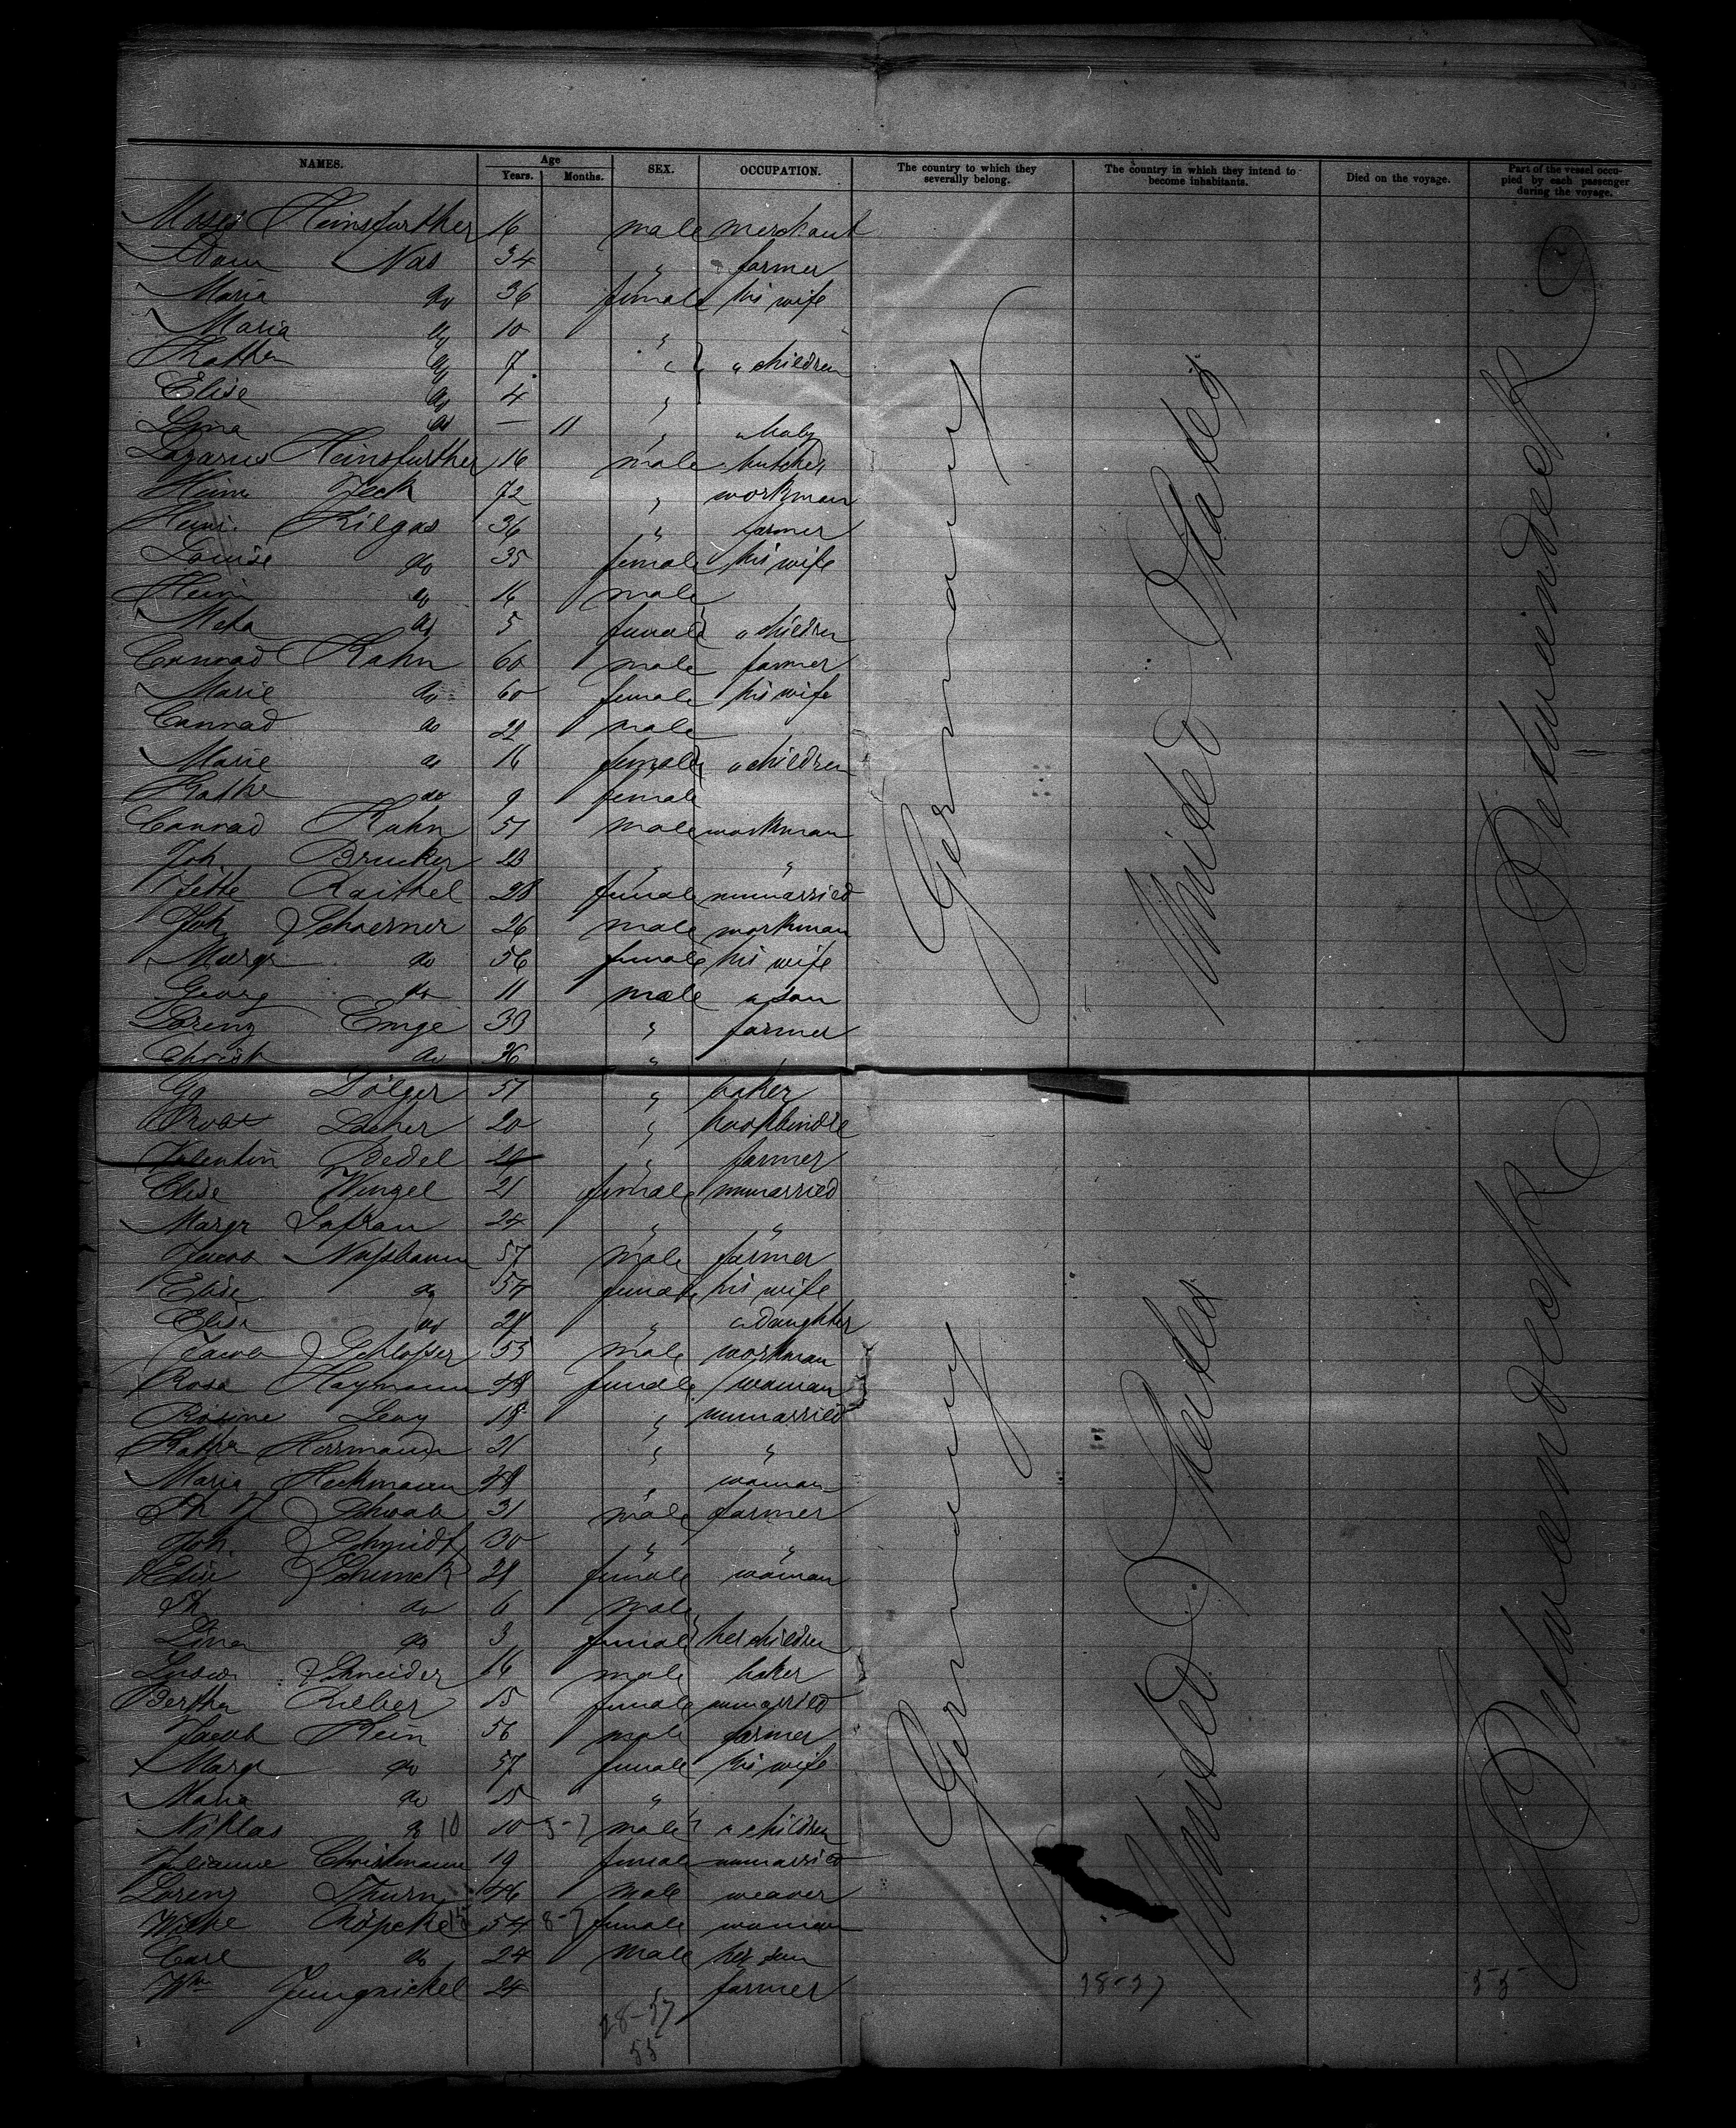 NAMES. Age Years. Months. SEX. OCCUPATION. The country to which they severally belong. The country in which they intend to become inhabitants. Died on the voyage. Part of the vessel occupied by each passenger during the voyage.
Moses Heinsfurther 16 male merchant
Adam Nas 34 " farmer
Maria do 36 female his wife
Maria do 10 "
Katha do 7 " " children
Elise do 4 "
Lina do — 11 " " baby
Lazarus Heinsfurther 16 male butcher
Heinr Zeck 72 " workman
Heinr. Kilgas 36 " farmer
Louise do 35 female his wife
Heinr do 16 male
Meta do 5 female " children
Conrad Kahn 60 male farmer
Marie do 60 female his wife
Conrad do 22 male
Marie do 16 female " children
Kathe do 9 female
Conrad Kuhn 51 male workman
Joh. Brucker 23 " "
Jette Raithel 28 female unmarried
Joh. Schoerner 26 male workman
Margr do 56 female his wife
Georg do 11 male " son
Lorenz Emge 39 " farmer
Christ do 36 " "
Germany United States Betweendeck
Go Dölger 51 " baker
Lacher 20 " bookbindre
Valentin Bedel 24 " farmer
Elise Wenzel 21 female unmarried
Margr Lafran 24 " "
Jacob Nußbaum 57 male farmer
Elise do 54 female his wife
Elise do 24 " " daughter
Jacob Schlosser 53 male workman
Rosa Haymann 48 female woman
Rosine Levy 18 " unmarried
Kathr Herrmann 21 " "
Maria Heckmann 48 " woman
Ph J Schwab 31 male farmer
Joh. Schmidt 30 " "
Elise Schunck 28 female woman
Ph do 6 male
Lina do 3 female her children
Ludw Schneider 16 male baker
Bertha Rieber 15 female unmarried
Jacob Rein 56 male farmer
Margr do 57 female his wife
Maria do 15 "
Niklas do 10 10 5-7 male " children
Julianne Christmann 19 female unmarried
Lorenz Thurn 46 male weaver
Wilhe Röpcke 15 54 8-7 female woman
Carl do 24 male her son
Wm Jungnickel 24 " farmer
Germany United States Betweendeck
28-27 55
28-27
55